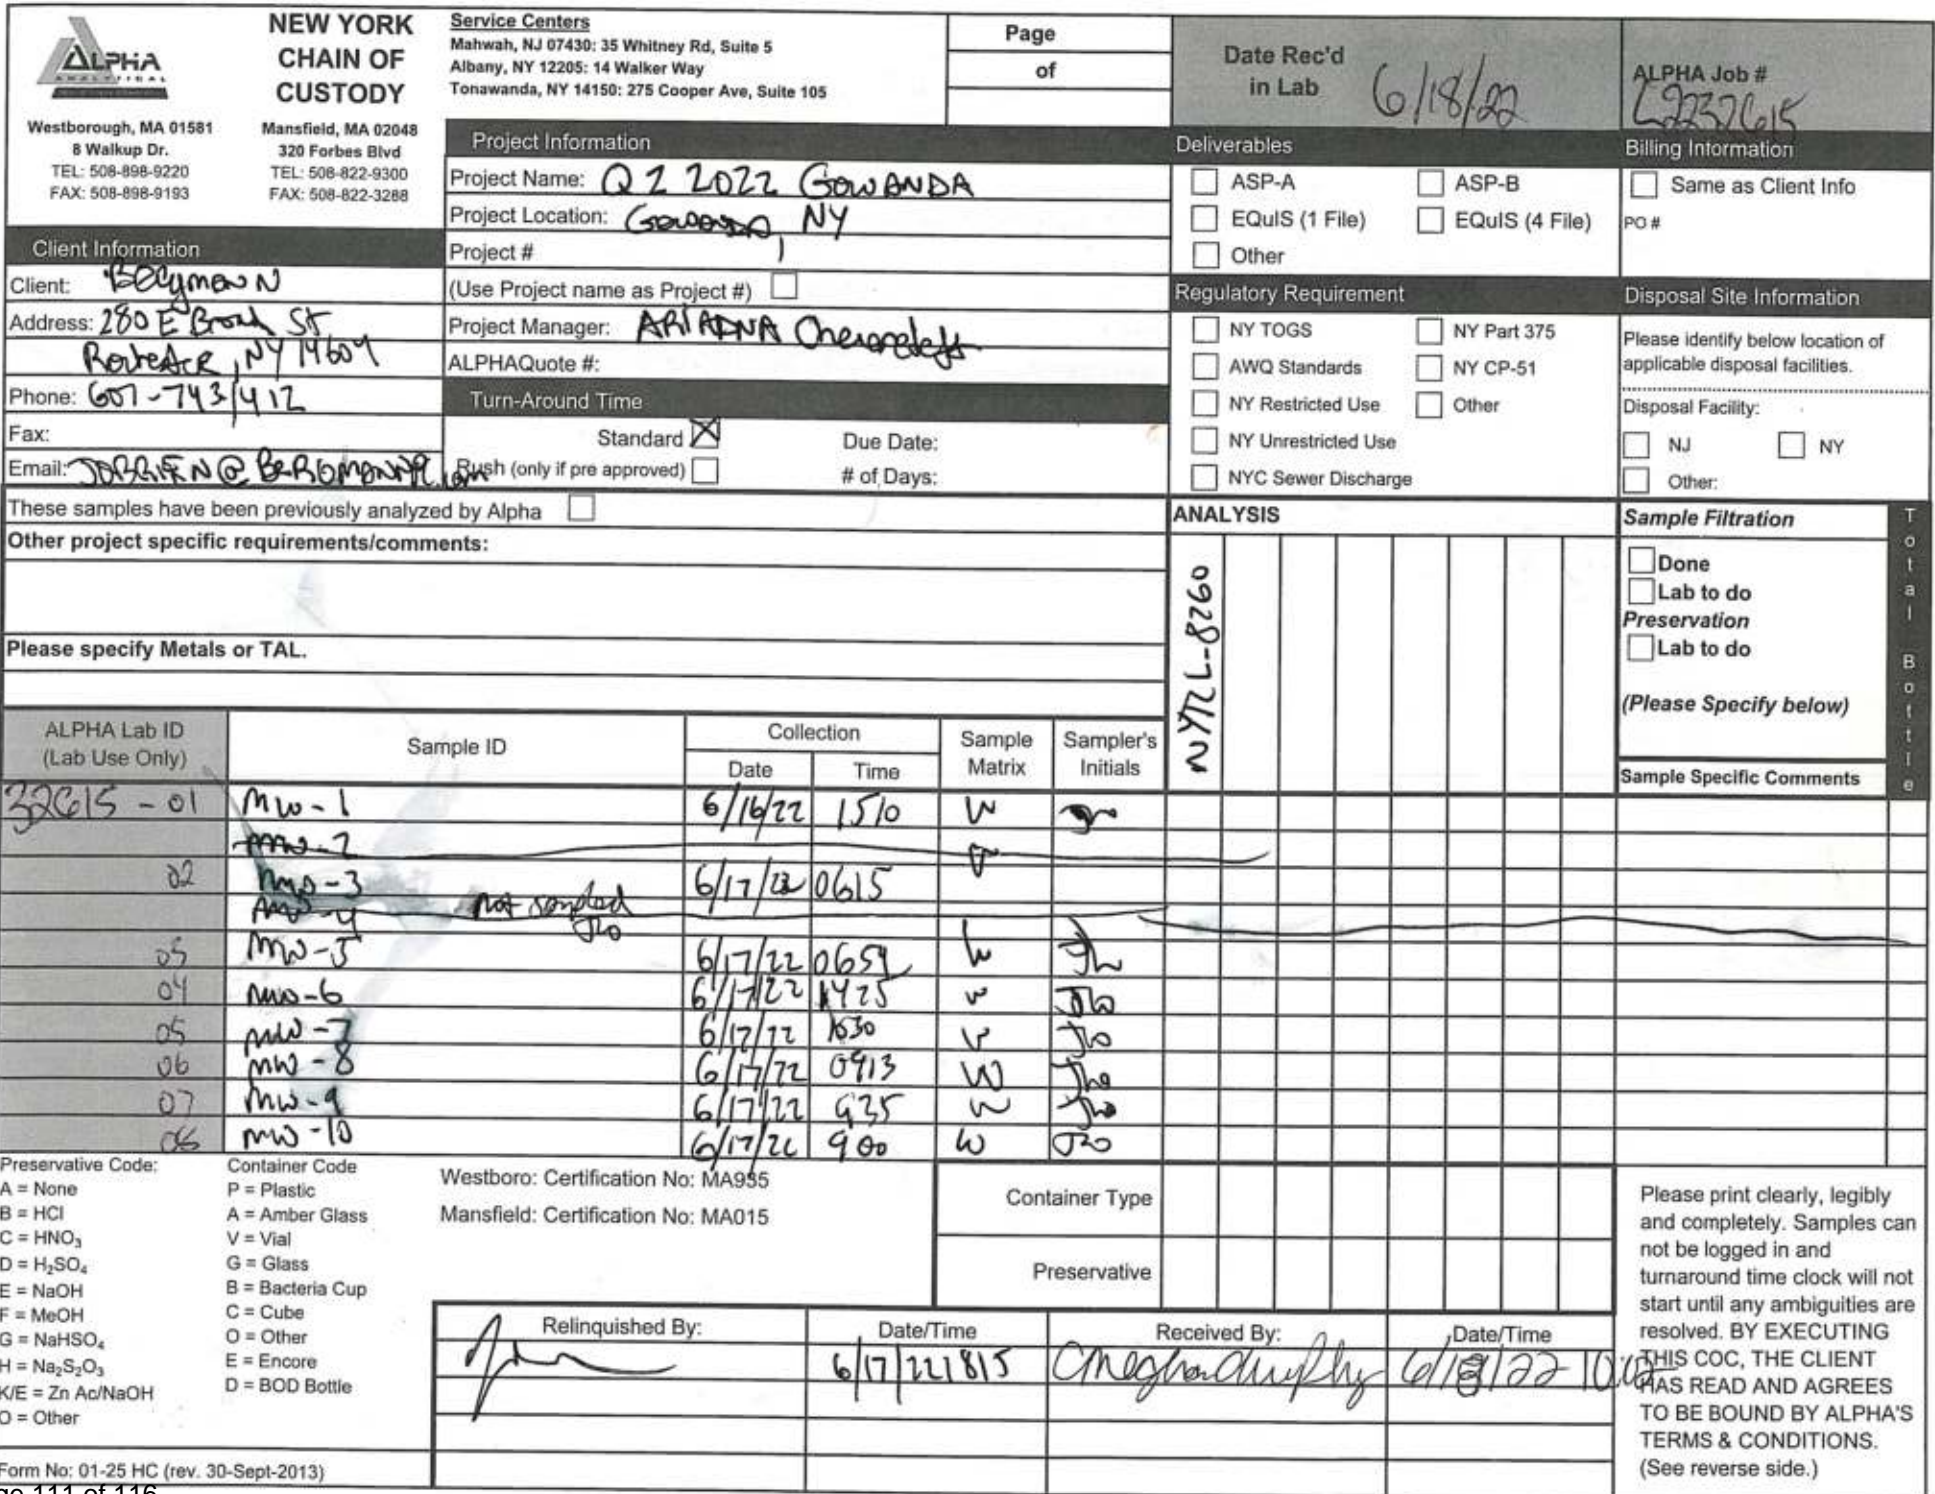 ALPHA
ANALYTICAL
NEW YORK
CHAIN OF
CUSTODY
Westborough, MA 01581
8 Walkup Dr.
TEL: 508-898-9220
FAX: 508-898-9193
Mansfield, MA 02048
320 Forbes Blvd
TEL: 508-822-9300
FAX: 508-822-3288
Service Centers
Mahwah, NJ 07430: 35 Whitney Rd, Suite 5
Albany, NY 12205: 14 Walker Way
Tonawanda, NY 14150: 275 Cooper Ave, Suite 105
Page
of
Date Rec'd
in Lab 6/18/22
ALPHA Job #
L2232615
Client Information
Client:
Address: 280 E Broad St
NY 14604
Phone: 607-743 1412
Fax:
Email:
Project Information
Project Name: Q2 2022 GOWANDA
Project Location: Gowanda, NY
Project #
(Use Project name as Project #)
Project Manager: ARIADNA
ALPHAQuote #:
Turn-Around Time
Standard X Due Date:
Rush (only if pre approved) # of Days:
Deliverables
ASP-A ASP-B
EQuIS (1 File) EQuIS (4 File)
Other
Billing Information
Same as Client Info
PO #
Regulatory Requirement
NY TOGS NY Part 375
AWQ Standards NY CP-51
NY Restricted Use Other
NY Unrestricted Use
NYC Sewer Discharge
Disposal Site Information
Please identify below location of
applicable disposal facilities.
Disposal Facility:
NJ NY
Other:
These samples have been previously analyzed by Alpha
Other project specific requirements/comments:
Please specify Metals or TAL.
ANALYSIS
-8260
Sample Filtration
Done
Lab to do
Preservation
Lab to do
(Please Specify below)
Sample Specific Comments
Total Bottle
ALPHA Lab ID
(Lab Use Only)
Sample ID
Collection
Date Time
Sample
Matrix
Sampler's
Initials
32615-01 MW-1 6/16/22 1510 W
MW-2
02 MW-3 6/17/22 0615
MW-4 not sampled
MW-5 6/17/22 W
04 MW-6 6/17/22 1425 W
05 MW-7 6/17/22 W
06 MW-8 6/17/22 0913 W
07 MW-9 6/17/22 935 W
08 MW-10 6/17/22 900 W
Preservative Code:
A = None
B = HCl
C = HNO3
D = H2SO4
E = NaOH
F = MeOH
G = NaHSO4
H = Na2S2O3
K/E = Zn Ac/NaOH
O = Other
Container Code
P = Plastic
A = Amber Glass
V = Vial
G = Glass
B = Bacteria Cup
C = Cube
O = Other
E = Encore
D = BOD Bottle
Westboro: Certification No: MA935
Mansfield: Certification No: MA015
Container Type
Preservative
Relinquished By: Date/Time Received By: Date/Time
6/17/22 1815 6/18/22
Please print clearly, legibly
and completely. Samples can
not be logged in and
turnaround time clock will not
start until any ambiguities are
resolved. BY EXECUTING
THIS COC, THE CLIENT
HAS READ AND AGREES
TO BE BOUND BY ALPHA'S
TERMS & CONDITIONS.
(See reverse side.)
Form No: 01-25 HC (rev. 30-Sept-2013)
111 of 116